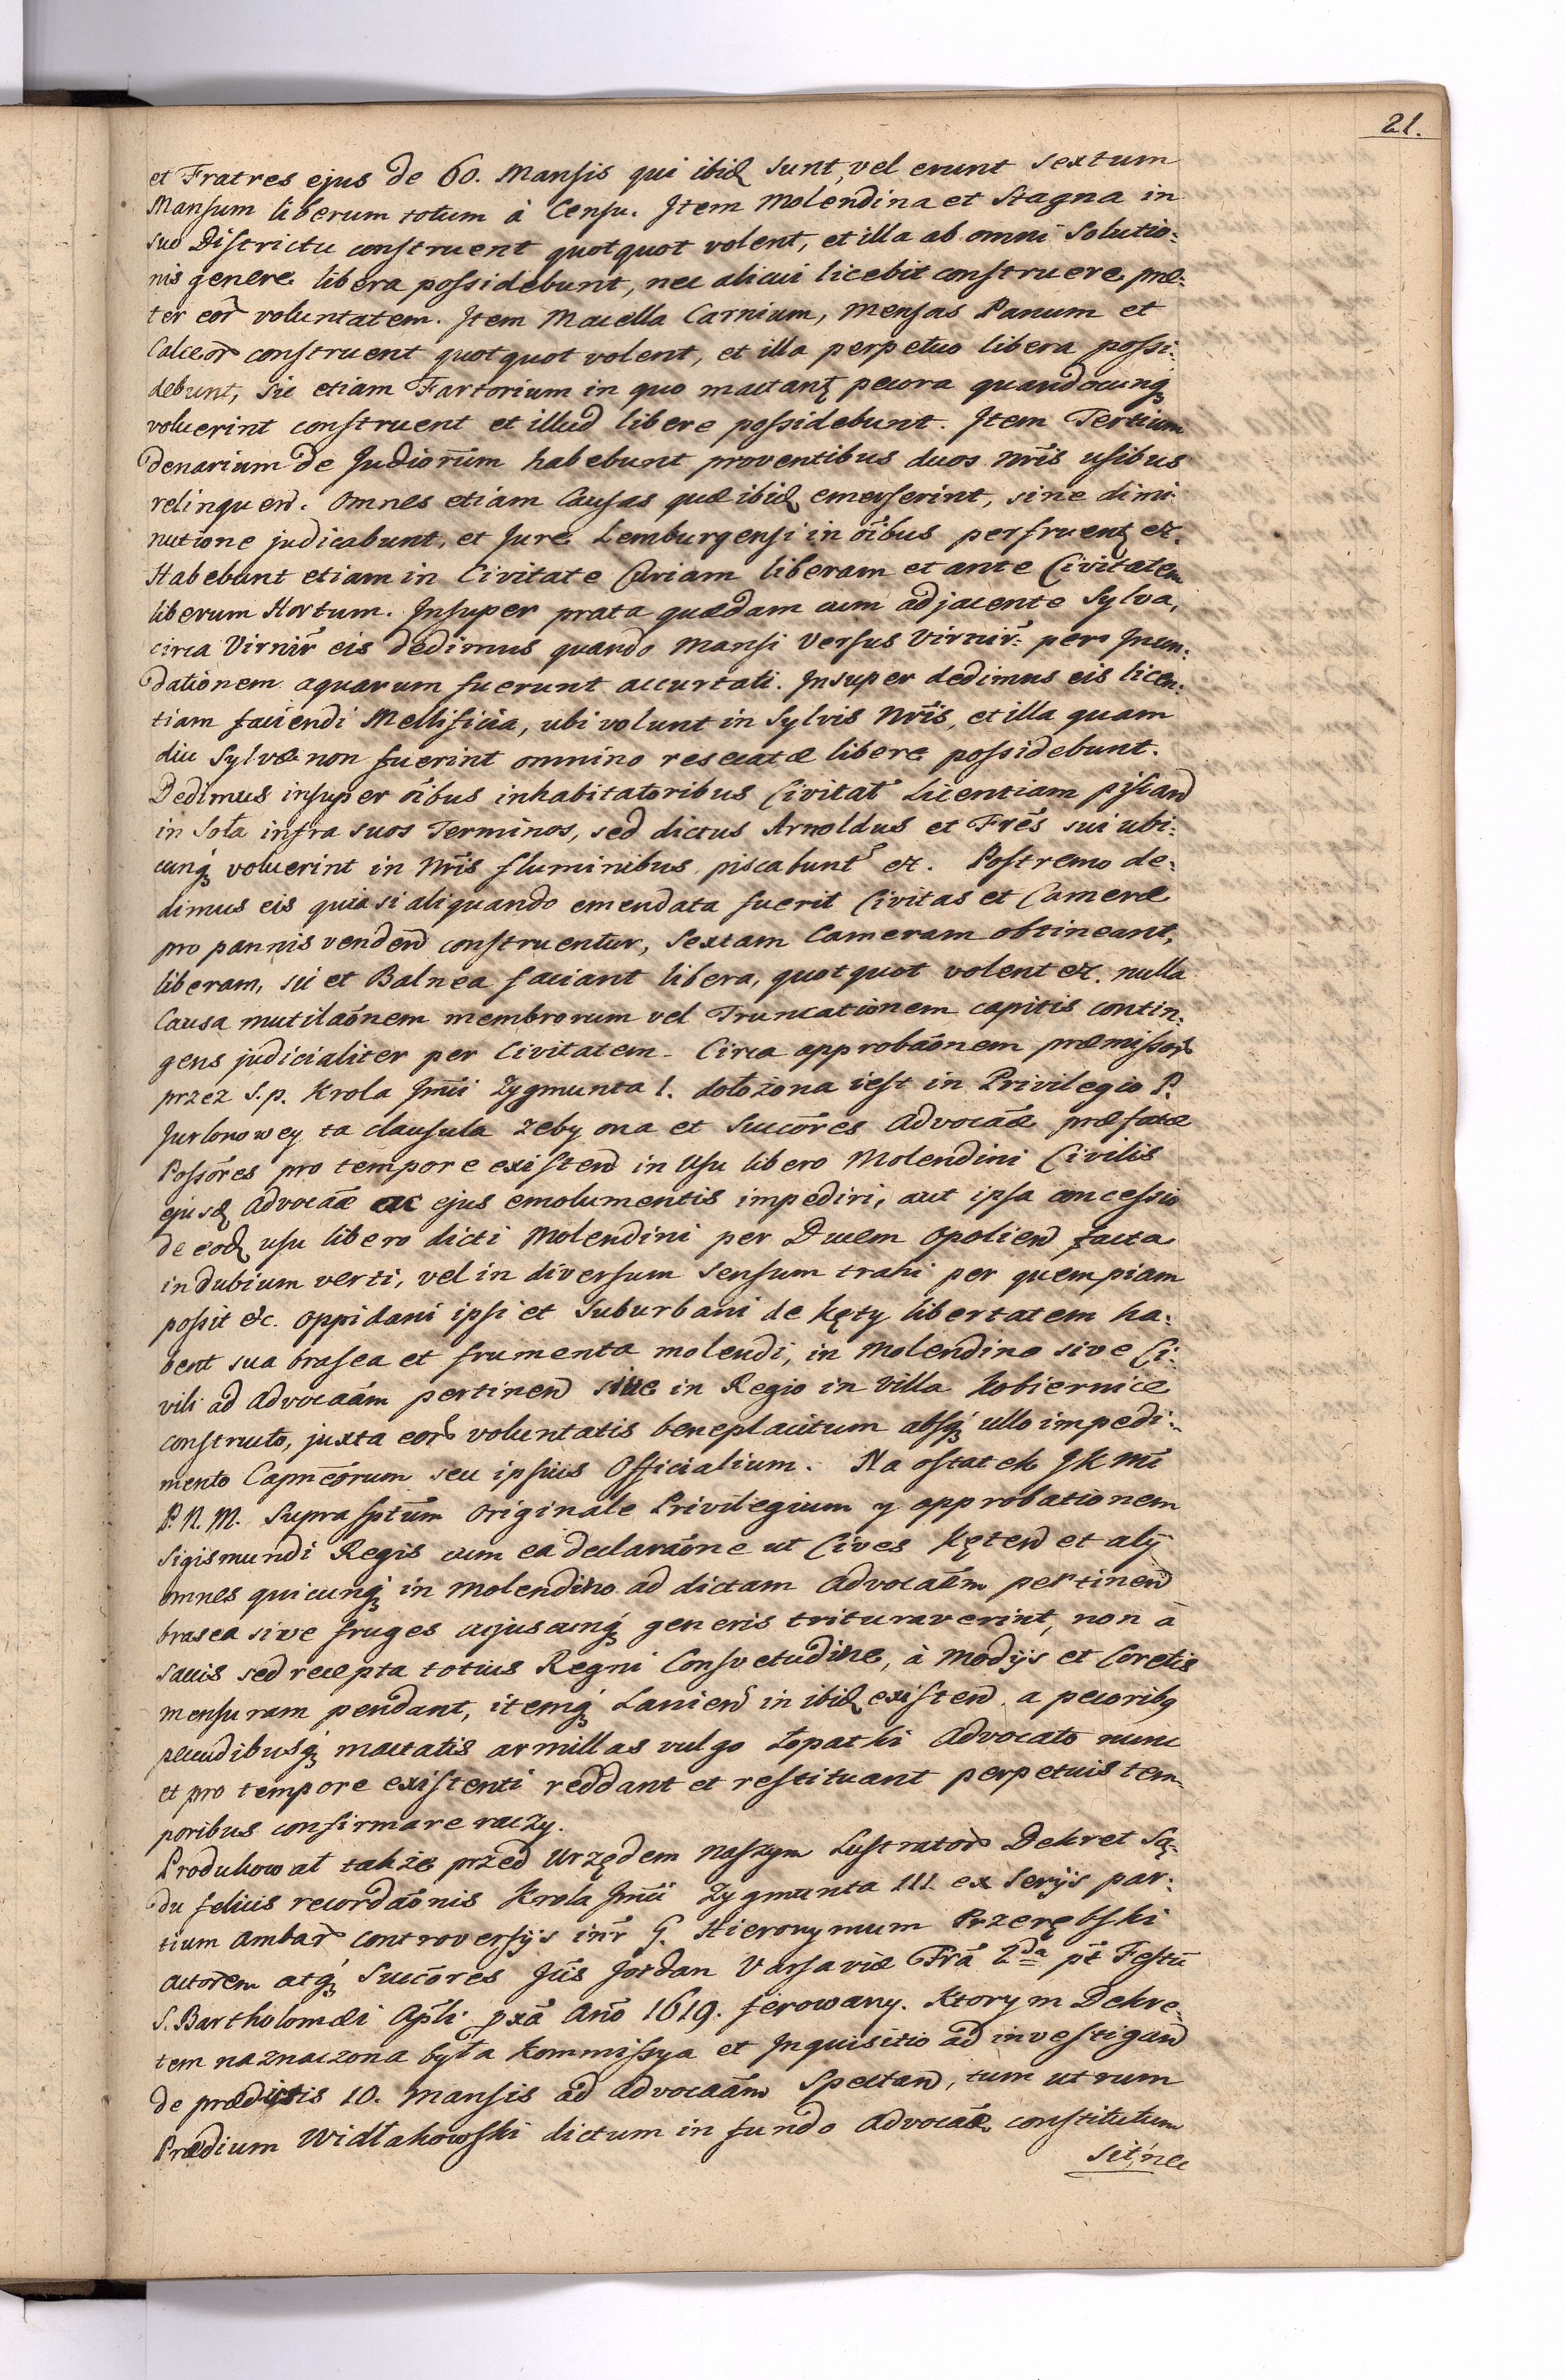 21.
et Fratres ejus de 60. Mansis qui ibid sunt, vel erunt sextum
Mansum liberum totum à Censu. Item Molendina et Stagna in
suo Districtu construent quotquot volent, et illa ab omni Solutio:
nis genere libera possidebunt, nec alicui licebit construere præ:
ter eor̃ voluntatem. Item Macella Carnium, Mensas Panum et
Calceor̃ construent quotquot volent, et illa perpetuo libera possi:
debunt, sic etiam Fartorium in quo mactantꝭ pecora quandocunqꝫ
voluerint construent et illud libere possidebunt. Item Tertium
denarium de Judiorum̃ habebunt proventibus duos Nr̃is usibus
relinquen̄. Omnes etiam Causas quæ ibid emerserint, sine dimi:
nutione judicabunt, et Jure Lemburgensi in oĩbus perfruentꝭ etc.
Habebunt etiam in Civitate Curiam liberam et ante Civitatem
liberum Hortum. Insuper prata quædam cum adjacente Sylva,
circa Virnir̃ eis dedimus quando Mansi versus Virnir̃: per Inun:
dationem aquarum fuerunt accurtati. Insuper dedimus eis licen:
tiam faciendi Mellificia, ubi volunt in Sylvis Nr̃is, et illa quam
diu Sylvæ non fuerint omnino resecatæ libere possidebunt.
Dedimus insuper oĩbus inhabitatoribus Civitat̃ Licentiam piscand̄
in Soła infra suos Terminos, sed dictus Arnoldus et Frẽs sui ubi:
cunqꝫ voluerint in Nr̃is fluminibus piscabunt̃ etc. Postremo de:
dimus eis quia si aliquando emendata fuerit Civitas et Cameræ
pro pannis venden̄ construentur, Sextam Cameram obtineant,
liberam, sic et Balnea faciant libera, quotquot volent etc. nulla
Causa mutilaõnem membrorum vel Truncationem capitis contin:
gens judicialiter per Civitatem. Circa approbaõnem præmissor̃
przez S.p. Krola Jm̃ci Zygmunta I. dołożona iest in Privilegio P.
Jurlonowey ta clausula zeby ona et Succõres Advocãæ præfatæ
Possõres pro tempore existen̄ in Usu libero Molendini Civilis
ejusd Advocãæ ac ejus emolumentis impediri, aut ipsa concessio
de eod usu libero dicti Molendini per Ducem Opolien̄ facta
in dubium verti, vel in diversum sensum trahi per quempiam
possit etc. Oppidani ipsi et Suburbani de Kęty libertatem ha:
bent sua brasea et frumenta molendi, in Molendino sive Ci:
vili ad Advocaãm pertinen̄ sive in Regio in Villa Kobiernice
constructo, juxta eor̃ voluntatis beneplacitum absqꝫ ullo impedi:
mento Capnẽorum seu ipsius Officialium. Na ostatek JK Mć
P. N. M. Suprasptũm Originale Privilegium y approbationem
Sigismundi Regis cum ea declaraõne ut Cives Kęten̄ et alÿ
omnes quicunqꝫ in Molendino ad dictam Advocaẽm pertinen̄
brasea sive fruges cujuscunqꝫ generis trituraverint, non à
saccis sed recepta totius Regni Consvetudine, à Modÿs et Coretis
mensuram pendant, itemqꝫ Lanien̄ in ibid existen̄ a pecoribꝫ
pecudibusqꝫ mactatis armillas vulgo Łopatki Advocato nunc
et pro tempore existenti reddant et restituant perpetuis tem
poribus confirmare raczy.
Produkował także przed Urzędem naszym Lustrator̃ Dekret Są:
du felicis recordaõnis Krola Jm̃ci Zygmunta III. ex Serÿs par:
tium ambar̃ controversÿs int̃r G. Hieronymum Przerębski
actorem atqꝫ Succõres Jũs Jordan Varsaviæ Fr̃a 2da pt̃ Festũ
S. Bartholomæi Ap̃li px̃a Año 1619. ferowany. Ktorym Dekre:
tem naznaczona była Kommissya et Inquisitio ad investigan̄
de prædictis 10. Mansis ad Advocaãm Spectan̄, tum utrum
Prædium Widłakowski dictum in fundo Advocãæ constitutum
Sit, nec